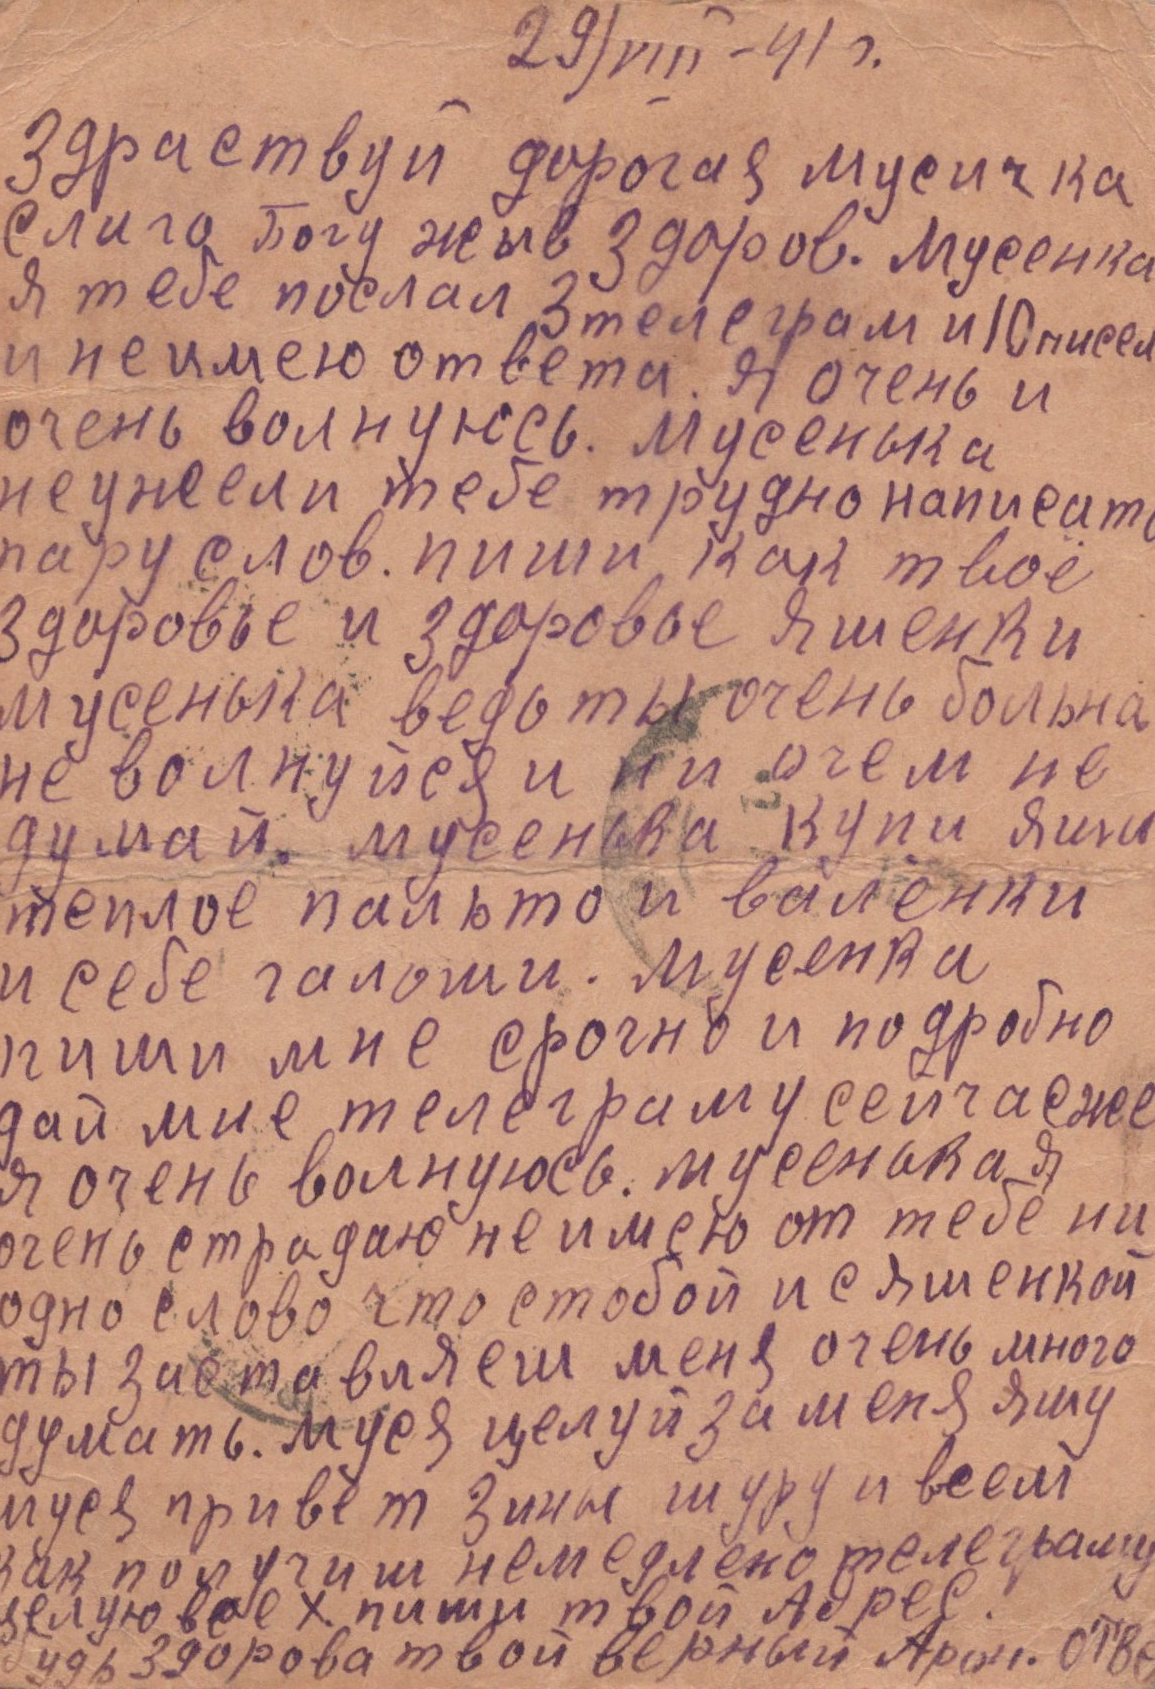 29/VIII-41 г.
Здраствуй дорогая мусичка
слига Богу жыв Здоров. Мусенка
Я тебе послал 3 телеграм и 10 писем
и не имею ответа. Я очень и
очень волнуюсь. Мусенька
неужели тебе трудно написать
пару слов. пиши как твоё
здоровье и здоровье Яшенки
мусенька ведь ты очень больна
не волнуйся и ни очем не
думай. мусенька купи яши
теплое пальто и валенки
и себе галоши. Мусенка
пиши мне срочно и подробно
дай мне телеграму сейчасже
я очень волнуюсь. мусенька я
очень страдаю не имею от тебе ни
одно слово что стобой и с Яшенкой
ты заставляеш меня очень много
думать. муся целуй за меня яшу
муся привет зины шуру и всем
как получиш немедлено телеграму
целую всех пиши твой Адрес.
Будь здорова твой верный Арон. ОТВЕ